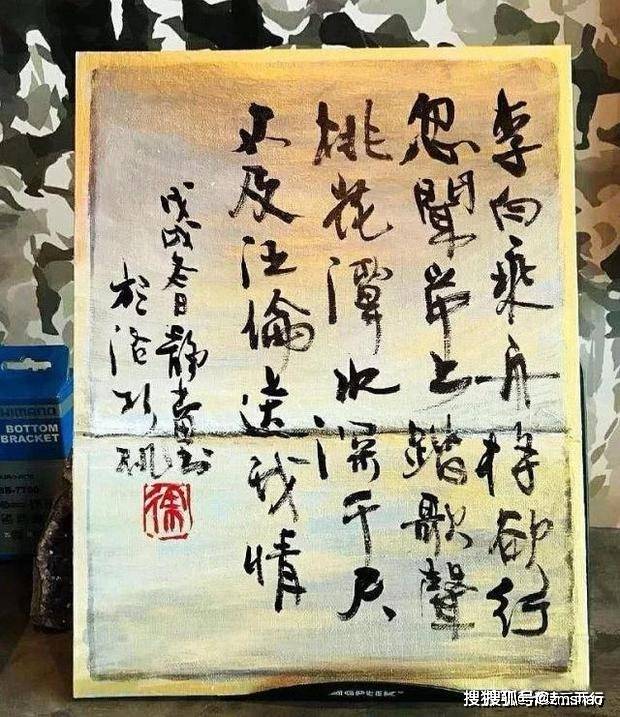 李白乘舟将欲行
忽聞岸上踏歌聲
桃花潭水深千尺
不及汪倫送我情
戊戌日靜书
於洛杉磯
HIMANO
BOTTOM
BRACKET
搜狐号@zmshao